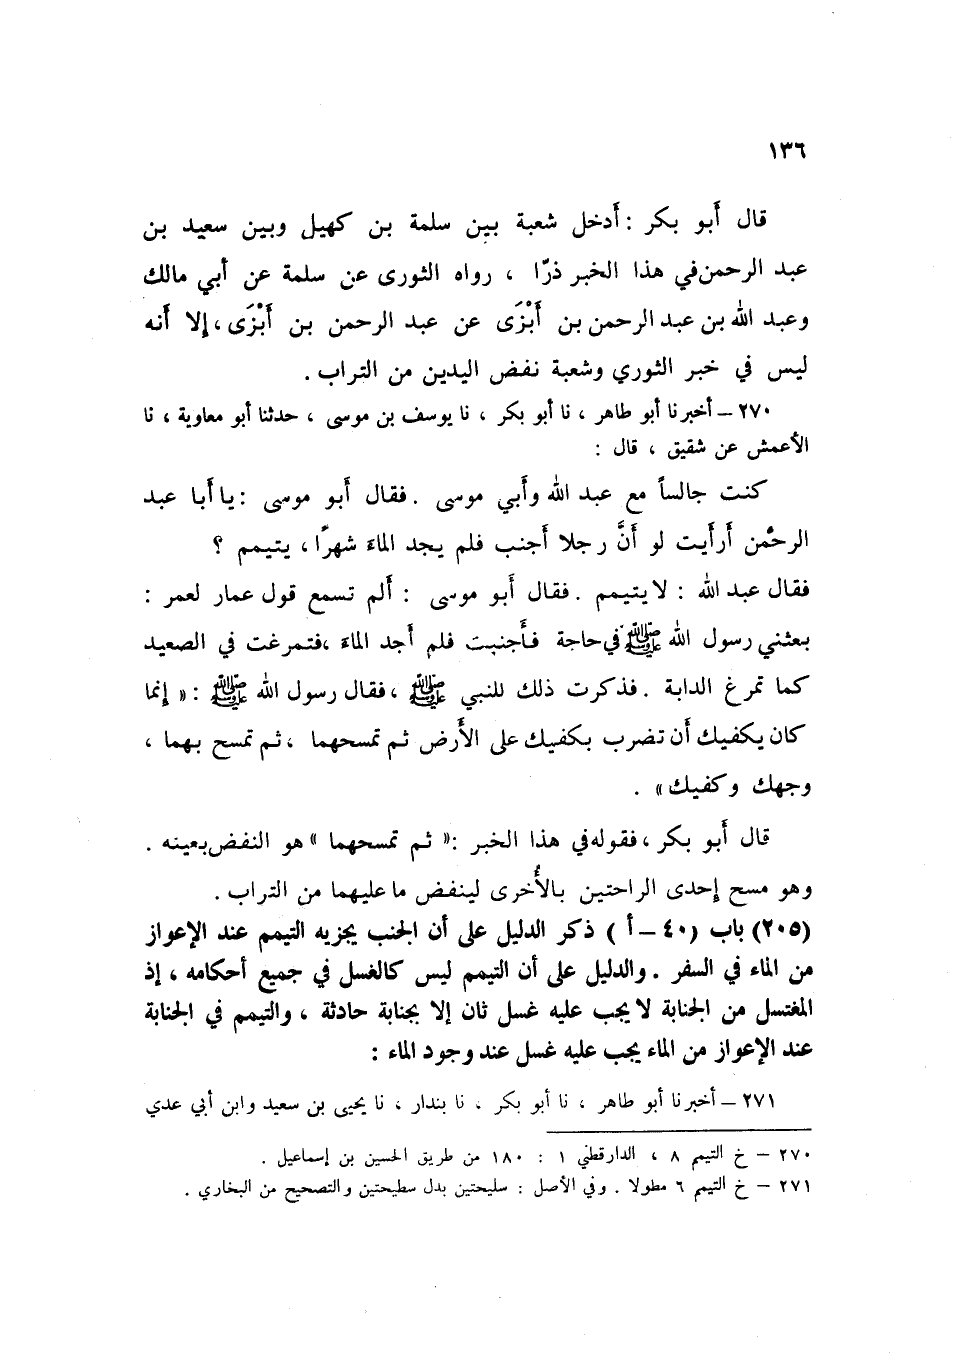 ١٣٦
قال أبو بكر : أدخل شعبة بين سلمة بن كهيل وبين سعيد بن
عبد الرحمن في هذا الخبر ذرّا ، رواه الثورى عن سلمة عن أبي مالك
وعبد الله بن عبد الرحمن بن أَبْزَى عن عبد الرحمن بن أَبْزَى ، إلا أنه
ليس في خبر الثوري وشعبة نفض اليدين من التراب .
٢٧٠ – أخبرنا أبو طاهر ، نا أبو بكر ، نا يوسف بن موسى ، حدثنا أبو معاوية ، نا
الأعمش عن شقيق ، قال :
كنت جالساً مع عبد الله وأبي موسى . فقال أبو موسى : يا أبا عبد
الرحمن أرأيت لو أنَّ رجلا أجنب فلم يجد الماءَ شهرًا ، يتيمم ؟
فقال عبد الله : لا يتيمم . فقال أبو موسى : ألم تسمع قول عمار لعمر :
بعثني رسول الله ﷺ في حاجة فأجنبت فلم أجد الماءَ ، فتمرغت في الصعيد
كما تمرغ الدابة . فذكرت ذلك للنبي ﷺ ، فقال رسول الله ﷺ : « إنما
كان يكفيك أن تضرب بكفيك على الأرض ثم تمسحهما ، ثم تمسح بهما ،
وجهك وكفيك » .
قال أبو بكر ، فقوله في هذا الخبر : « ثم تمسحهما » هو النفض بعينه .
وهو مسح إحدى الراحتين بالأُخرى لينفض ما عليهما من التراب .
(٢٠٥) باب (٤٠ – أ ) ذكر الدليل على أن الجنب يجزيه التيمم عند الإعواز
من الماء في السفر . والدليل على أن التيمم ليس كالغسل في جميع أحكامه ، إذ
المغتسل من الجنابة لا يجب عليه غسل ثان إلا بجنابة حادثة ، والتيمم في الجنابة
عند الإعواز من الماء يجب عليه غسل عند وجود الماء :
٢٧١ – أخبرنا أبو طاهر ، نا أبو بكر ، نا بندار ، نا يحيى بن سعيد وابن أبي عدي
٢٧٠ – خ التيمم ٨ ، الدارقطني ١ : ١٨٠ من طريق الحسين بن إسماعيل .
٢٧١ – خ التيمم ٦ مطولا . وفي الأصل : سليحتين بدل سطيحتين والتصحيح من البخاري .